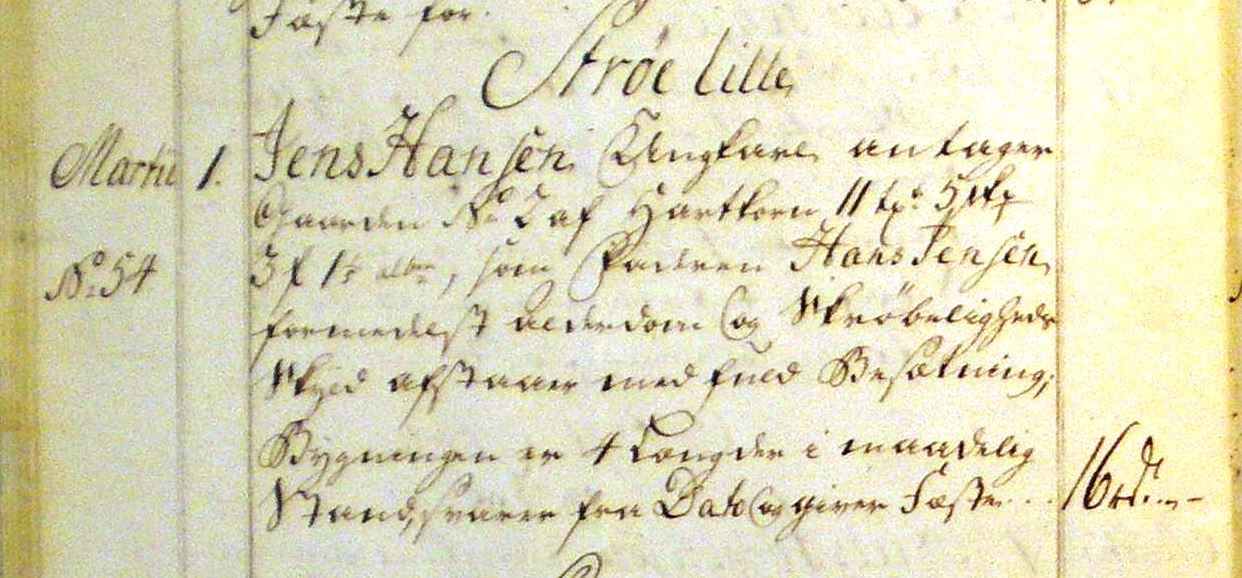 Fæste for
Strøe Lille
Martii 1. Jens Hansen Ungkarl antager
Gaarden No 2 af Hartkorn 11 tdr 5 skp
No 54 3 f 1½ alb, som Faderen Hans Jensen
formedelst alderdom og Skrøbeligheds
Skyld afstaaer med fuld Besætning,
Bygningen er 4 Længder i maadelig
Stand, svarer fra Dato og giver Fæste... 16 rd